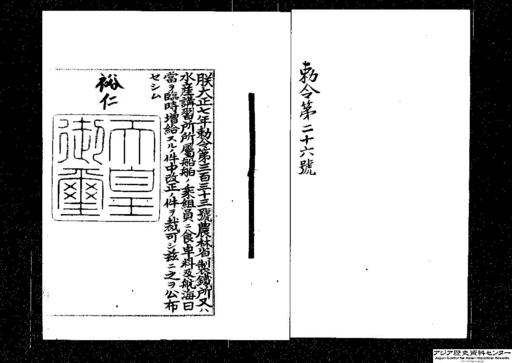 勅令第二十六號
朕大正七年勅令第三百三十三號農林省製鐵所又ハ
水産講習所所屬船舶ノ乘組員ニ食卓料及航海日
當ヲ臨時増給スルノ件中改正ノ件ヲ裁可シ茲ニ之ヲ公布
セシム
裕仁
天皇
御璽
アジア歴史資料センター
Japan Center for Asian Historical Records